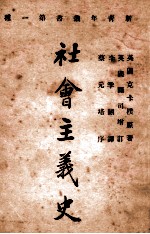 新青年叢書第一種
英國克卡樸原著
英國闢司增訂
李季譯
蔡元培序
社會主義史